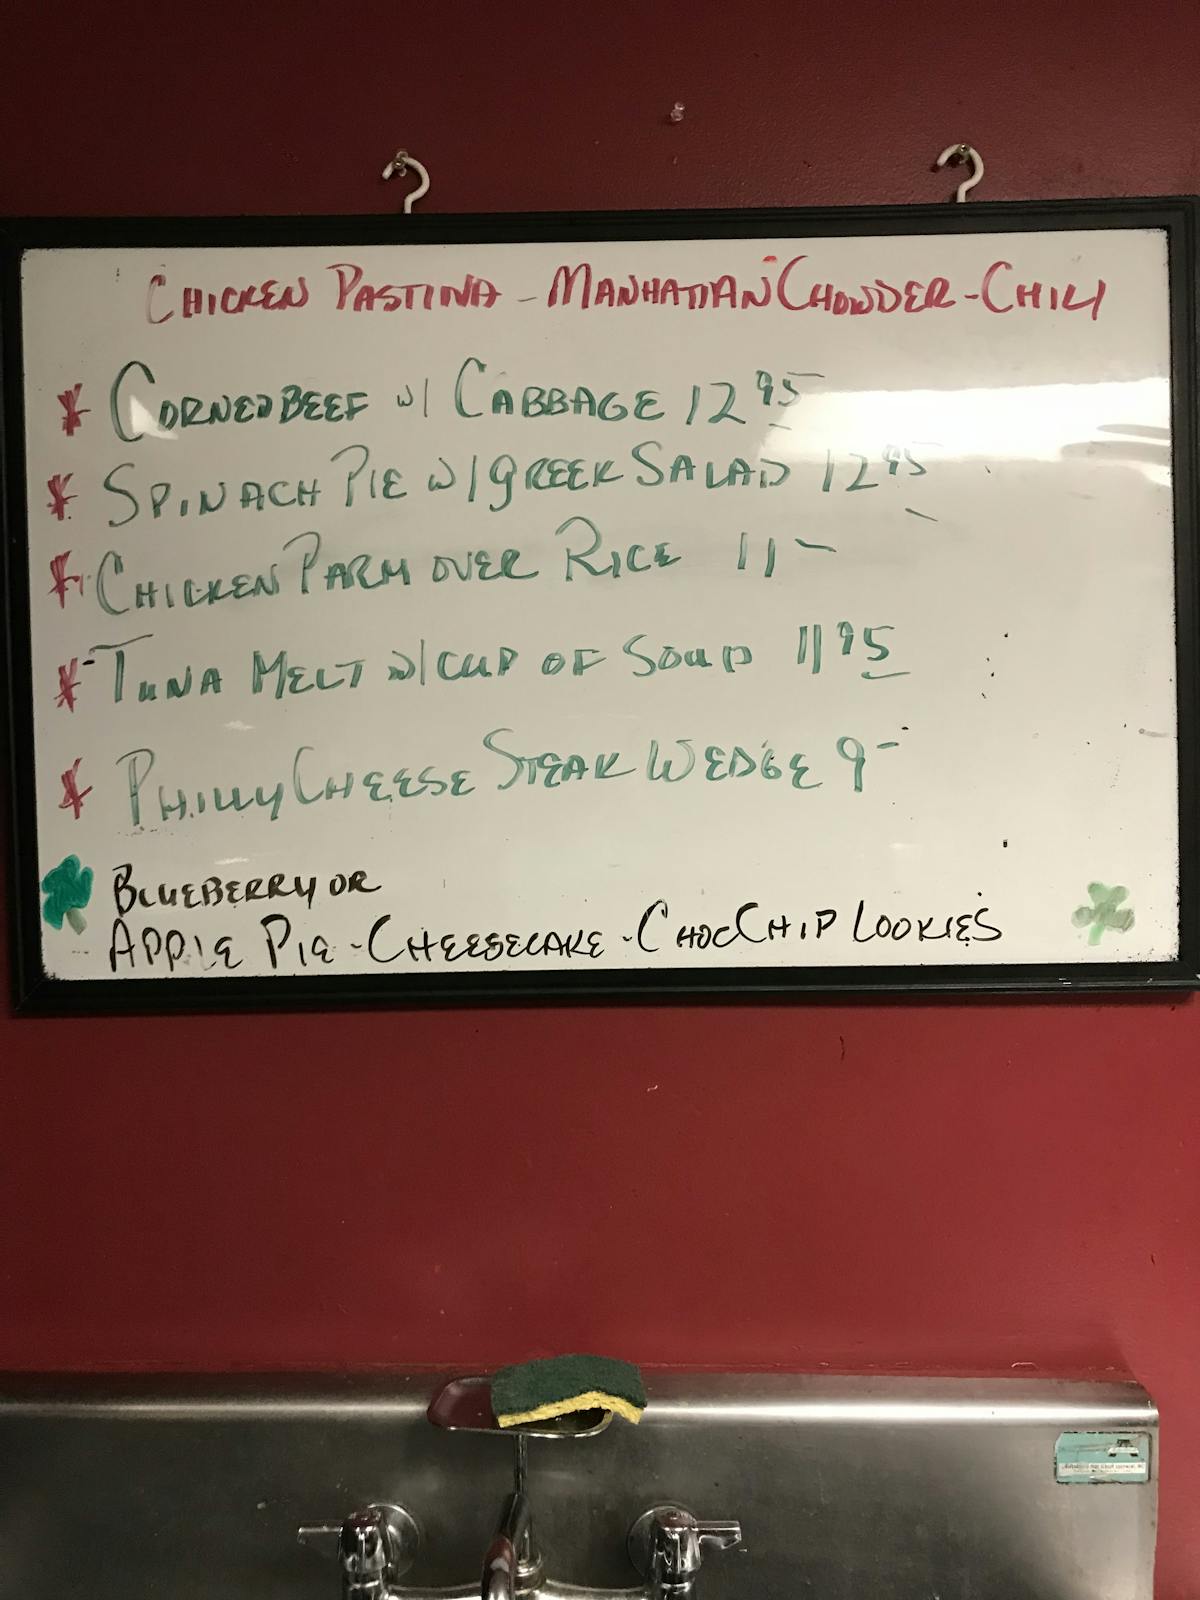 CHICKEN PASTINA - MANHATTAN CHOWDER - CHILI
* CORNED BEEF W/ CABBAGE 12 95
* SPINACH PIE W/ GREEK SALAD 12 95
* CHICKEN PARM OVER RICE 11 -
* TUNA MELT W/ CUP OF SOUP 11 95
* PHILLY CHEESE STEAK WEDGE 9 -
BLUEBERRY OR
APPLE PIE - CHEESECAKE - CHOC CHIP COOKIES